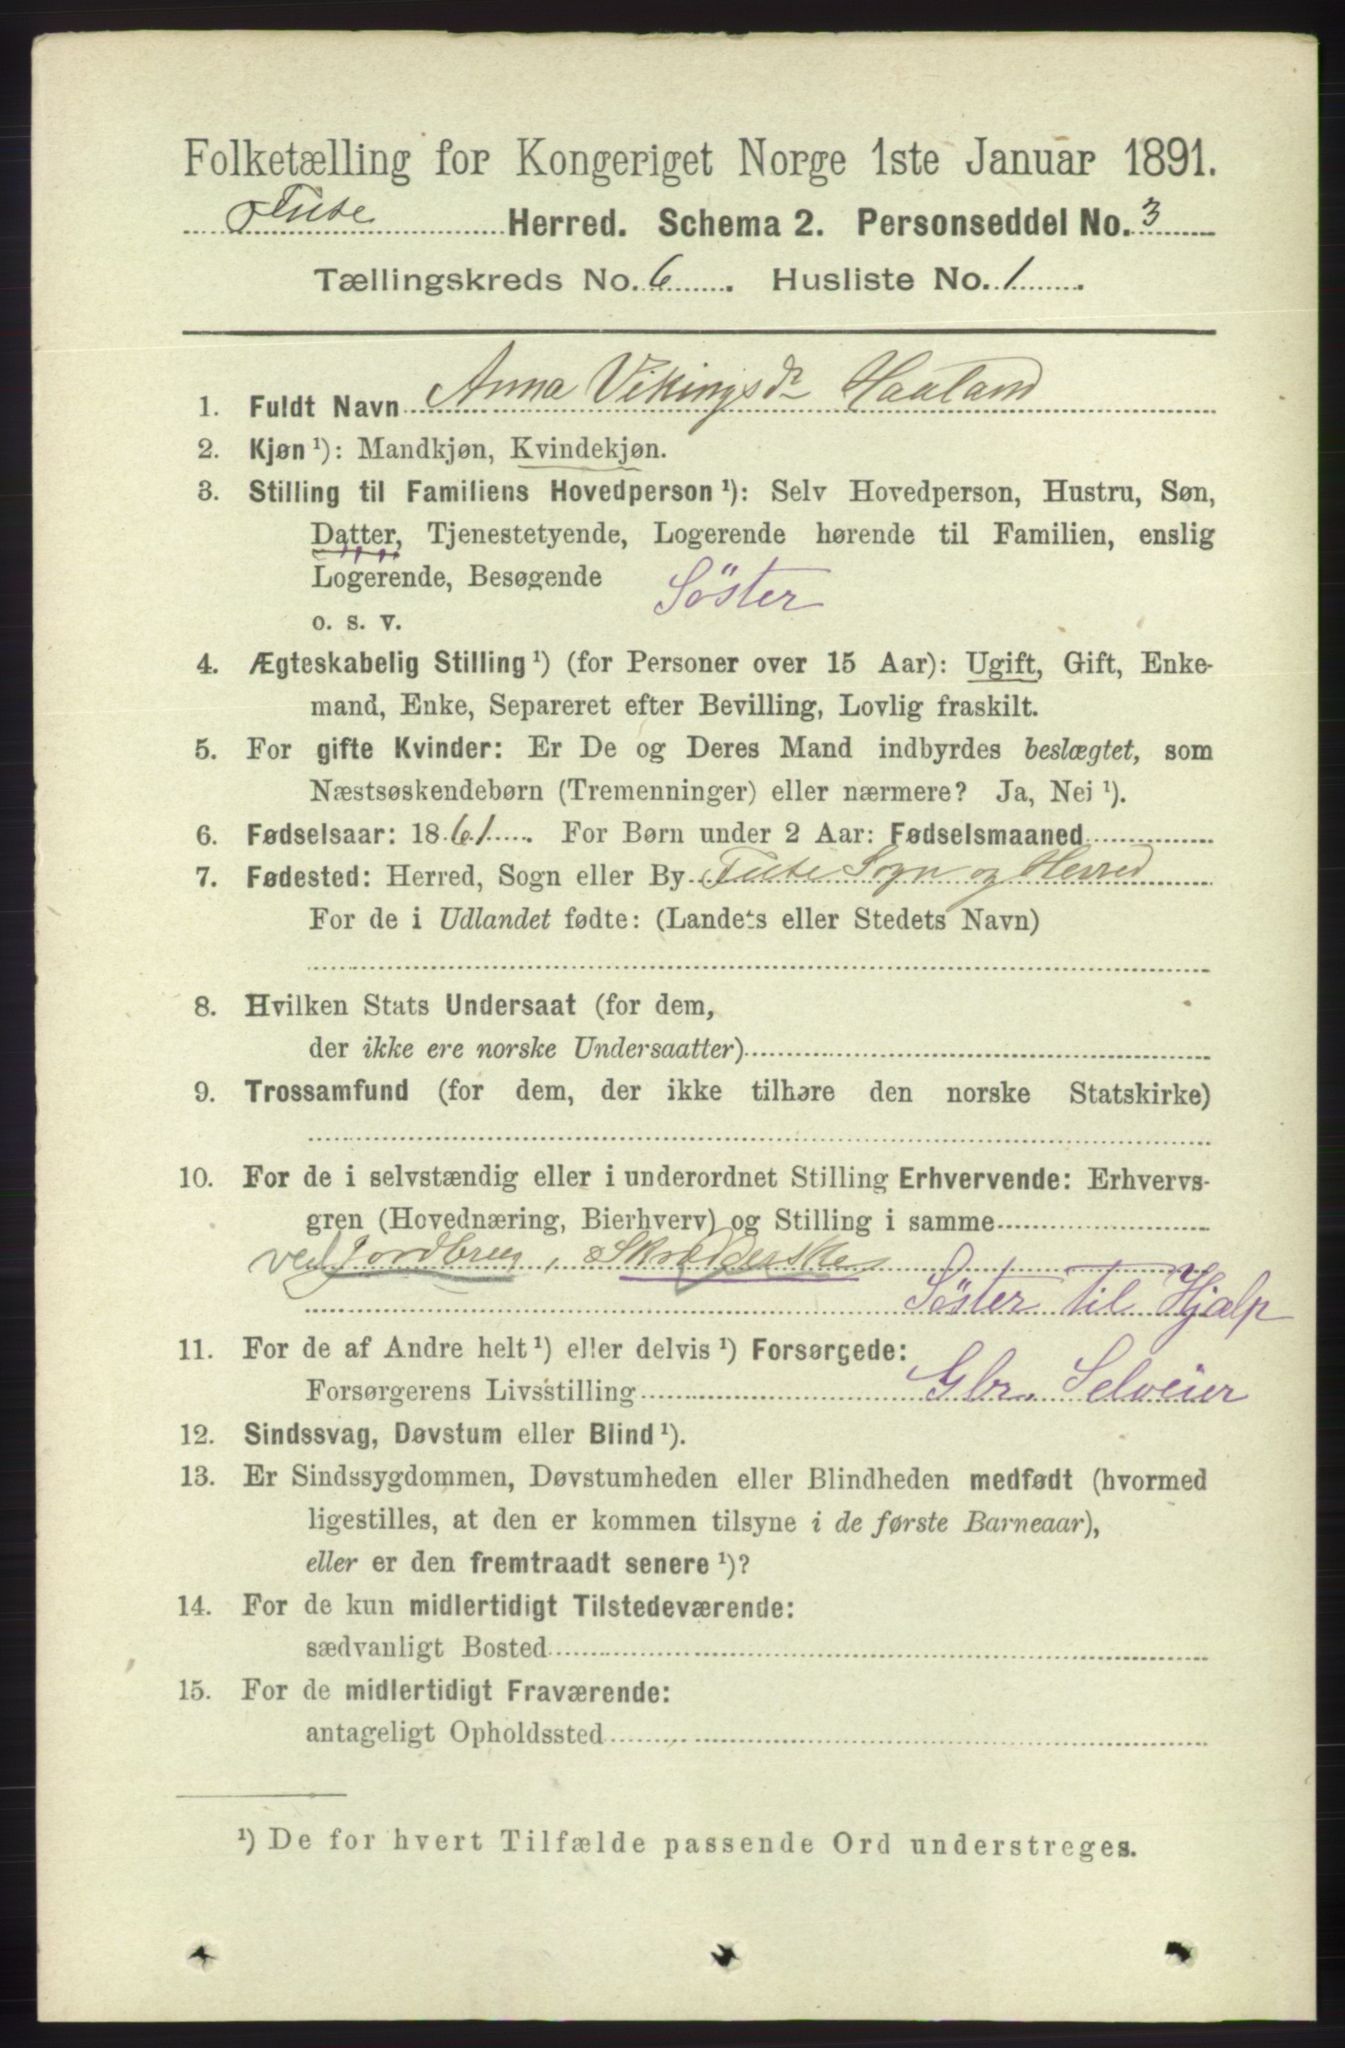 Folketælling for Kongeriget Norge 1ste Januar 1891.
Fuse Herred. Schema 2. Personseddel No. 3
Tællingskreds No. 6. Husliste No. 1.
1. Fuldt Navn Anna Vikingsdr Haaland
2. Kjøn ¹): Mandkjøn, Kvindekjøn.
3. Stilling til Familiens Hovedperson ¹): Selv Hovedperson, Hustru, Søn,
Datter, Tjenestetyende, Logerende hørende til Familien, enslig
Logerende, Besøgende
Söster
o. s. v.
4. Ægteskabelig Stilling ¹) (for Personer over 15 Aar): Ugift, Gift, Enke-
mand, Enke, Separeret efter Bevilling, Lovlig fraskilt.
5. For gifte Kvinder: Er De og Deres Mand indbyrdes beslægtet, som
Næstsøskendebørn (Tremenninger) eller nærmere? Ja, Nei ¹).
6. Fødselsaar: 1861. For Børn under 2 Aar: Fødselsmaaned
7. Fødested: Herred, Sogn eller By Fuse Sogn og Herred
For de i Udlandet fødte: (Landets eller Stedets Navn)
8. Hvilken Stats Undersaat (for dem,
der ikke ere norske Undersaatter)
9. Trossamfund (for dem, der ikke tilhøre den norske Statskirke)
10. For de i selvstændig eller i underordnet Stilling Erhvervende: Erhvervs-
gren (Hovednæring, Bierhverv) og Stilling i samme
ved Jordbrug, Skrædderske
Söster til Hjælp
11. For de af Andre helt ¹) eller delvis ¹) Forsørgede:
Forsørgerens Livsstilling Gbr. Selveier
12. Sindssvag, Døvstum eller Blind ¹).
13. Er Sindssygdommen, Døvstumheden eller Blindheden medfødt (hvormed
ligestilles, at den er kommen tilsyne i de første Barneaar),
eller er den fremtraadt senere ¹)?
14. For de kun midlertidigt Tilstedeværende:
sædvanligt Bosted
15. For de midlertidigt Fraværende:
antageligt Opholdssted
¹) De for hvert Tilfælde passende Ord understreges.